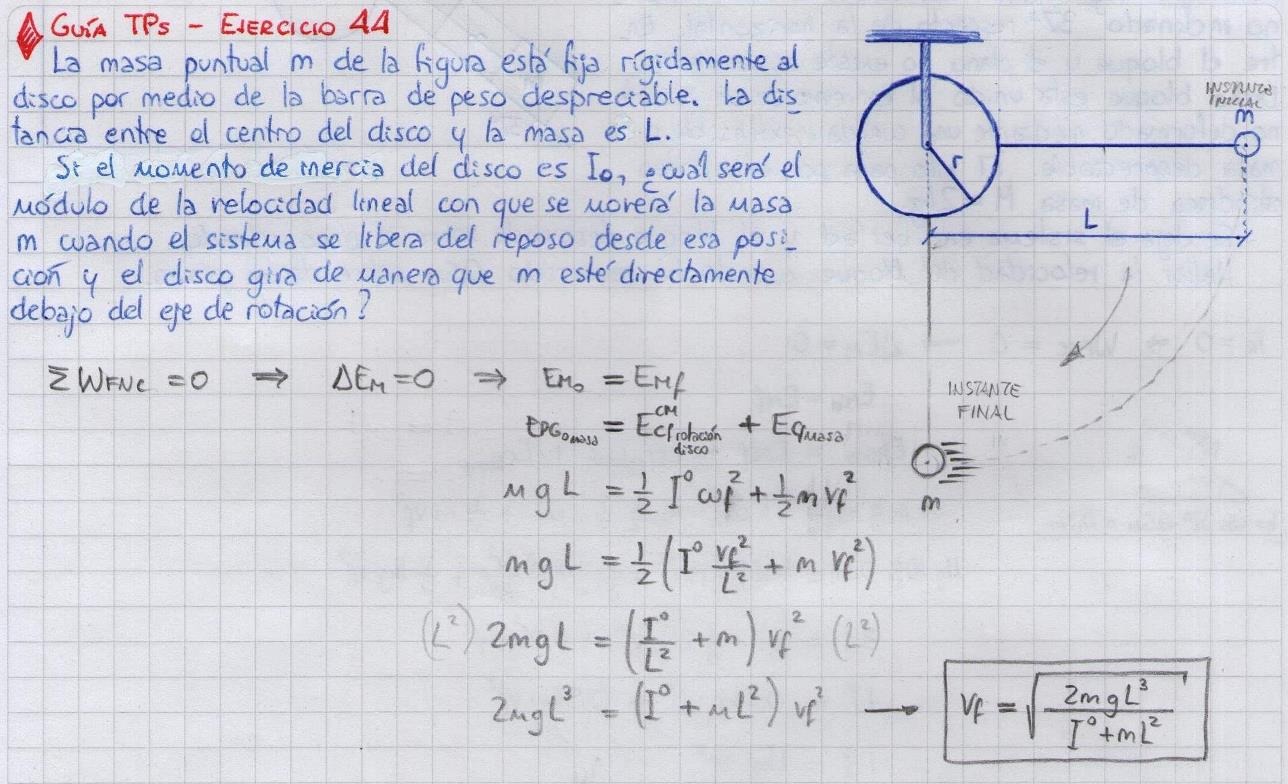 GUÍA TPs - EJERCICIO 44
La masa puntual m de la figura está fija rígidamente al
disco por medio de la barra de peso despreciable. La dis
tancia entre el centro del disco y la masa es L.
Si el momento de inercia del disco es I₀, ¿cuál será el
módulo de la velocidad lineal con que se moverá la masa
m cuando el sistema se libera del reposo desde esa posi_
ción y el disco gira de manera que m esté directamente
debajo del eje de rotación?
INSTANTE
INICIAL
m
r
L
INSTANTE
FINAL
m
ΣW_FNC = 0 ⇒ ΔE_M = 0 ⇒ E_M₀ = E_Mf
E_PG₀ masa = E_Cf^CM rotación disco + E_Cf masa
m g L = 1/2 I⁰ ωf² + 1/2 m vf²
m g L = 1/2 (I⁰ vf²/L² + m vf²)
(L²) 2mgL = (I⁰/L² + m) vf² (L²)
2mgL³ = (I⁰ + mL²) vf² → Vf = √(2mgL³/(I⁰+mL²))